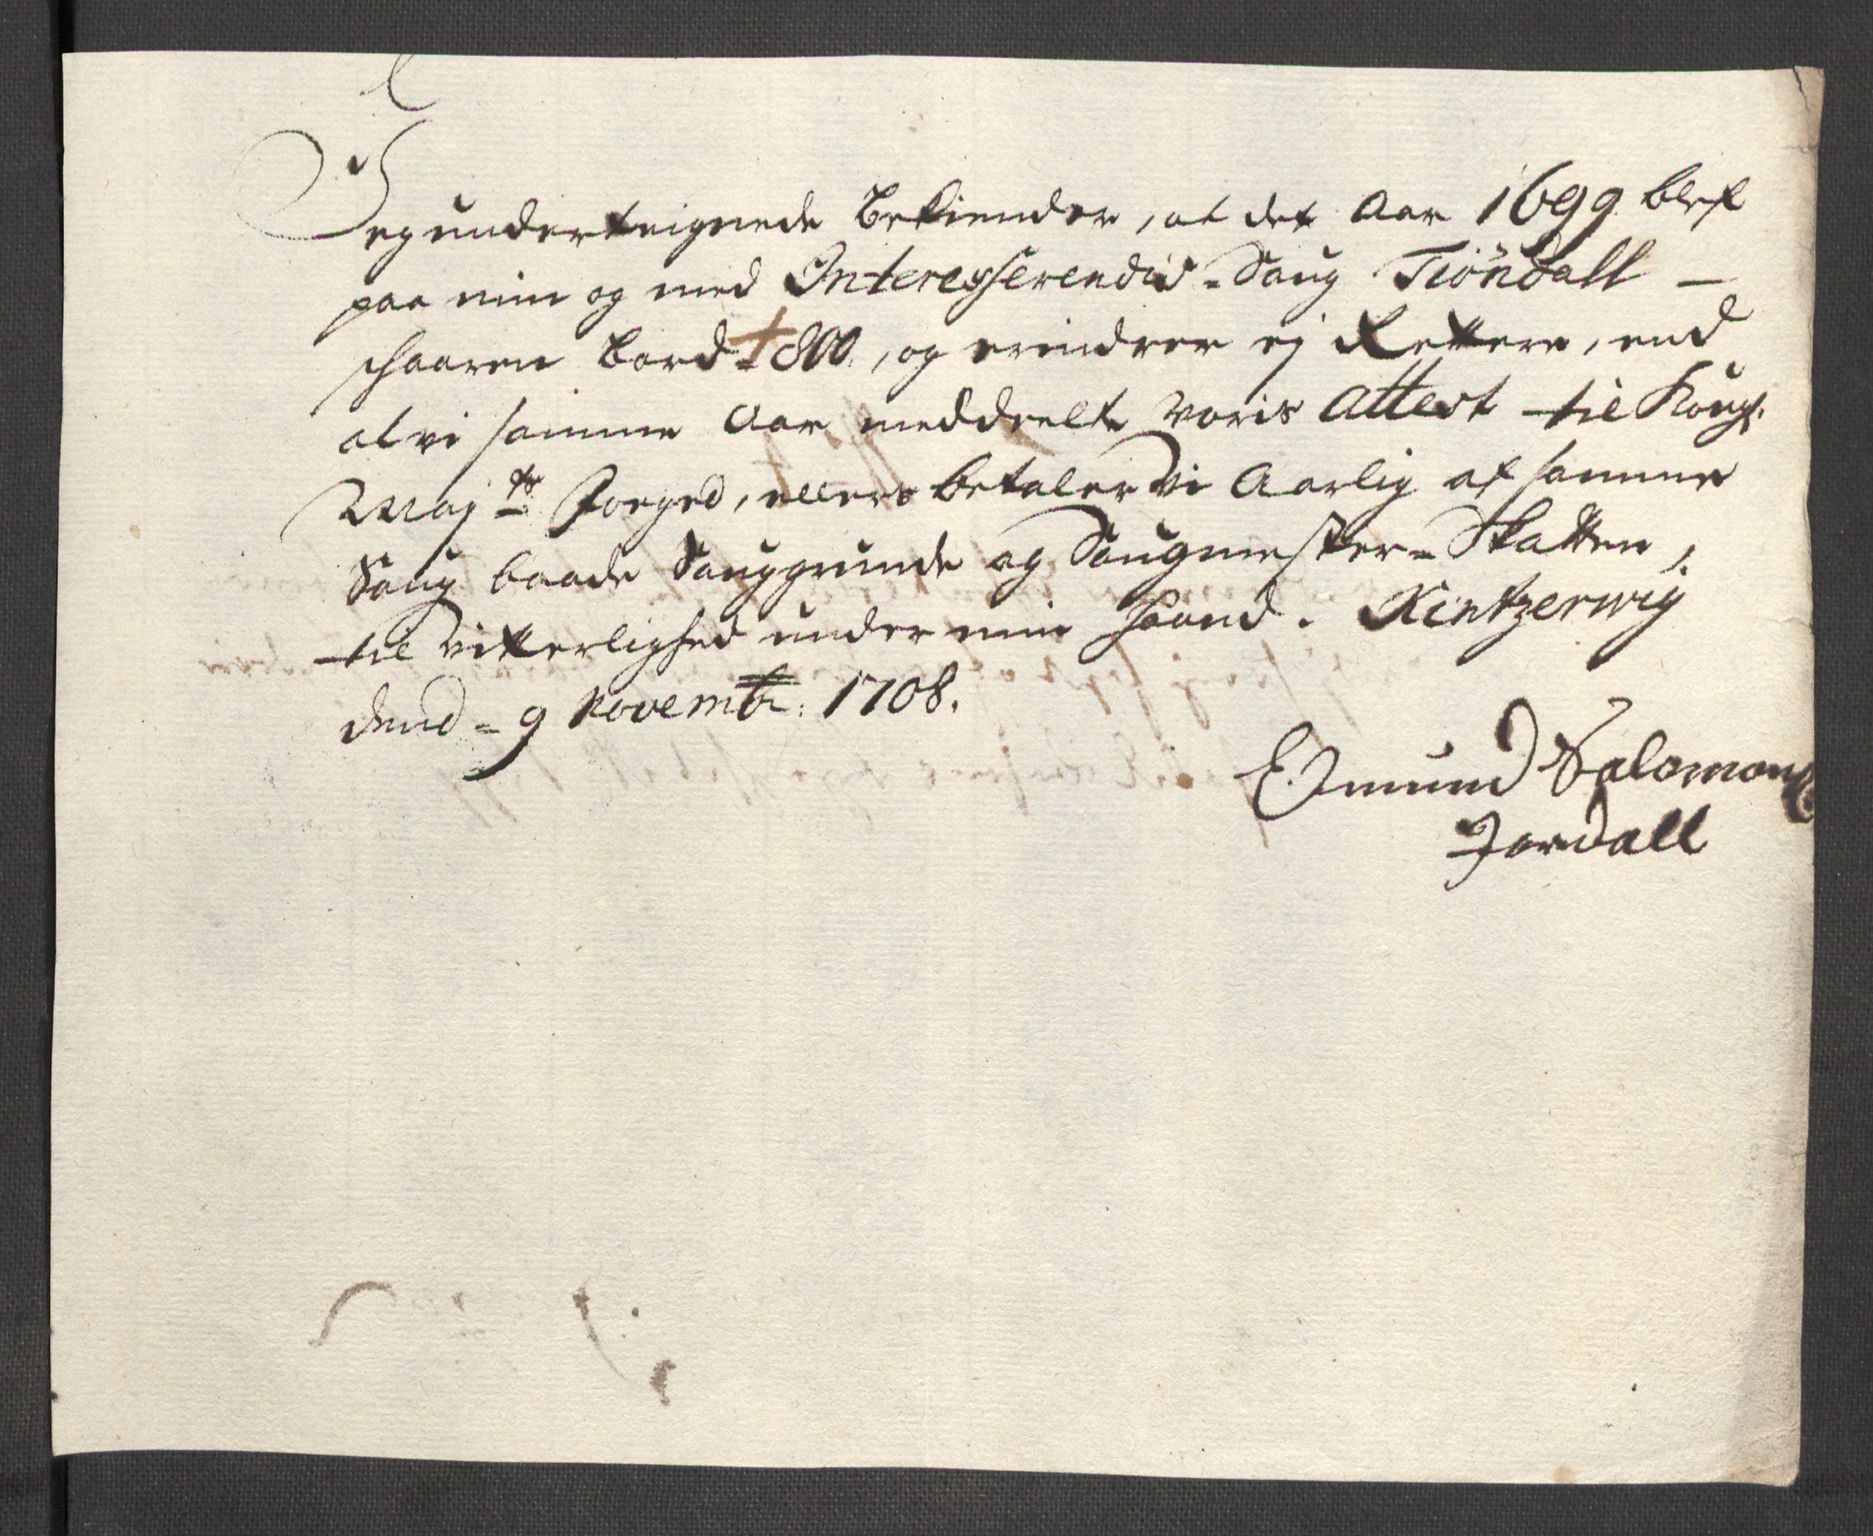 Jeg underteignede bekiender, at det Aar 1699 blef
paa min og med Interesserendis Saug Tiöndall –
schaaren bord 800, og erindrer ej Rettere, end
at vi samme Aar meddeelte voris Attest til Kongl.
Mayts Foeged, ellers betaler Vi Aarlig af samme
Saug baade Sauggrunde og Saugmester-Skatten,
til Vitterlighed under min Haand. Kintzerwig
dend 9 Novembr: 1708.
Edmund Salomons
Jordall